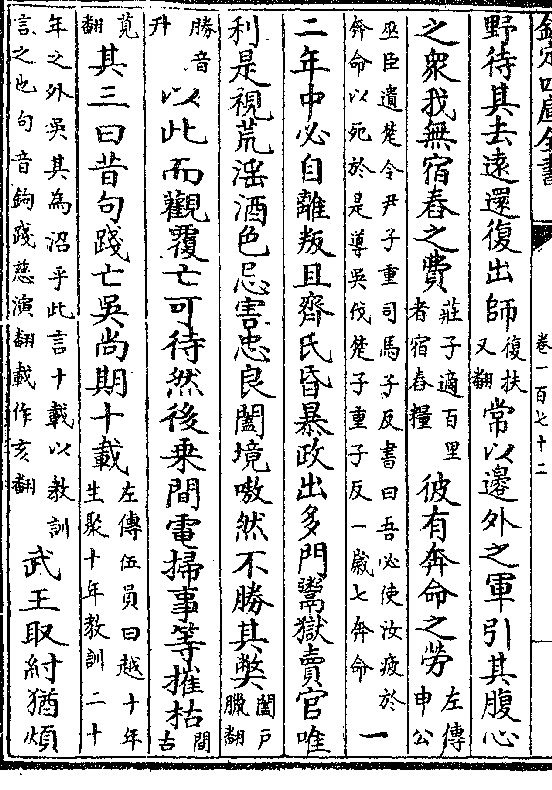 欽定四庫全書 卷一百七十二
野待其去遠還復出師復扶又翻常以邊外之軍引其腹心
之衆我無宿舂之費莊子適百里者宿舂糧彼有奔命之勞左傳申公
巫臣遺楚令尹子重司馬子反書曰吾必使汝疲於奔命以死於是導吳伐楚子重子反一歲七奔命一
二年中必自離叛且齊氏昏暴政出多門鬻獄賣官唯
利是視荒淫酒色忌害忠良闔境嗷然不勝其弊闔戶臘翻
勝音升以此而觀覆亡可待然後乘間電掃事等摧枯間古
莧翻其三曰昔句踐亡吳尚期十載左傳伍員曰越十年生聚十年教訓二十
年之外吳其為沼乎此言十載以教訓言之也句音鉤踐慈演翻載作亥翻武王取紂猶煩